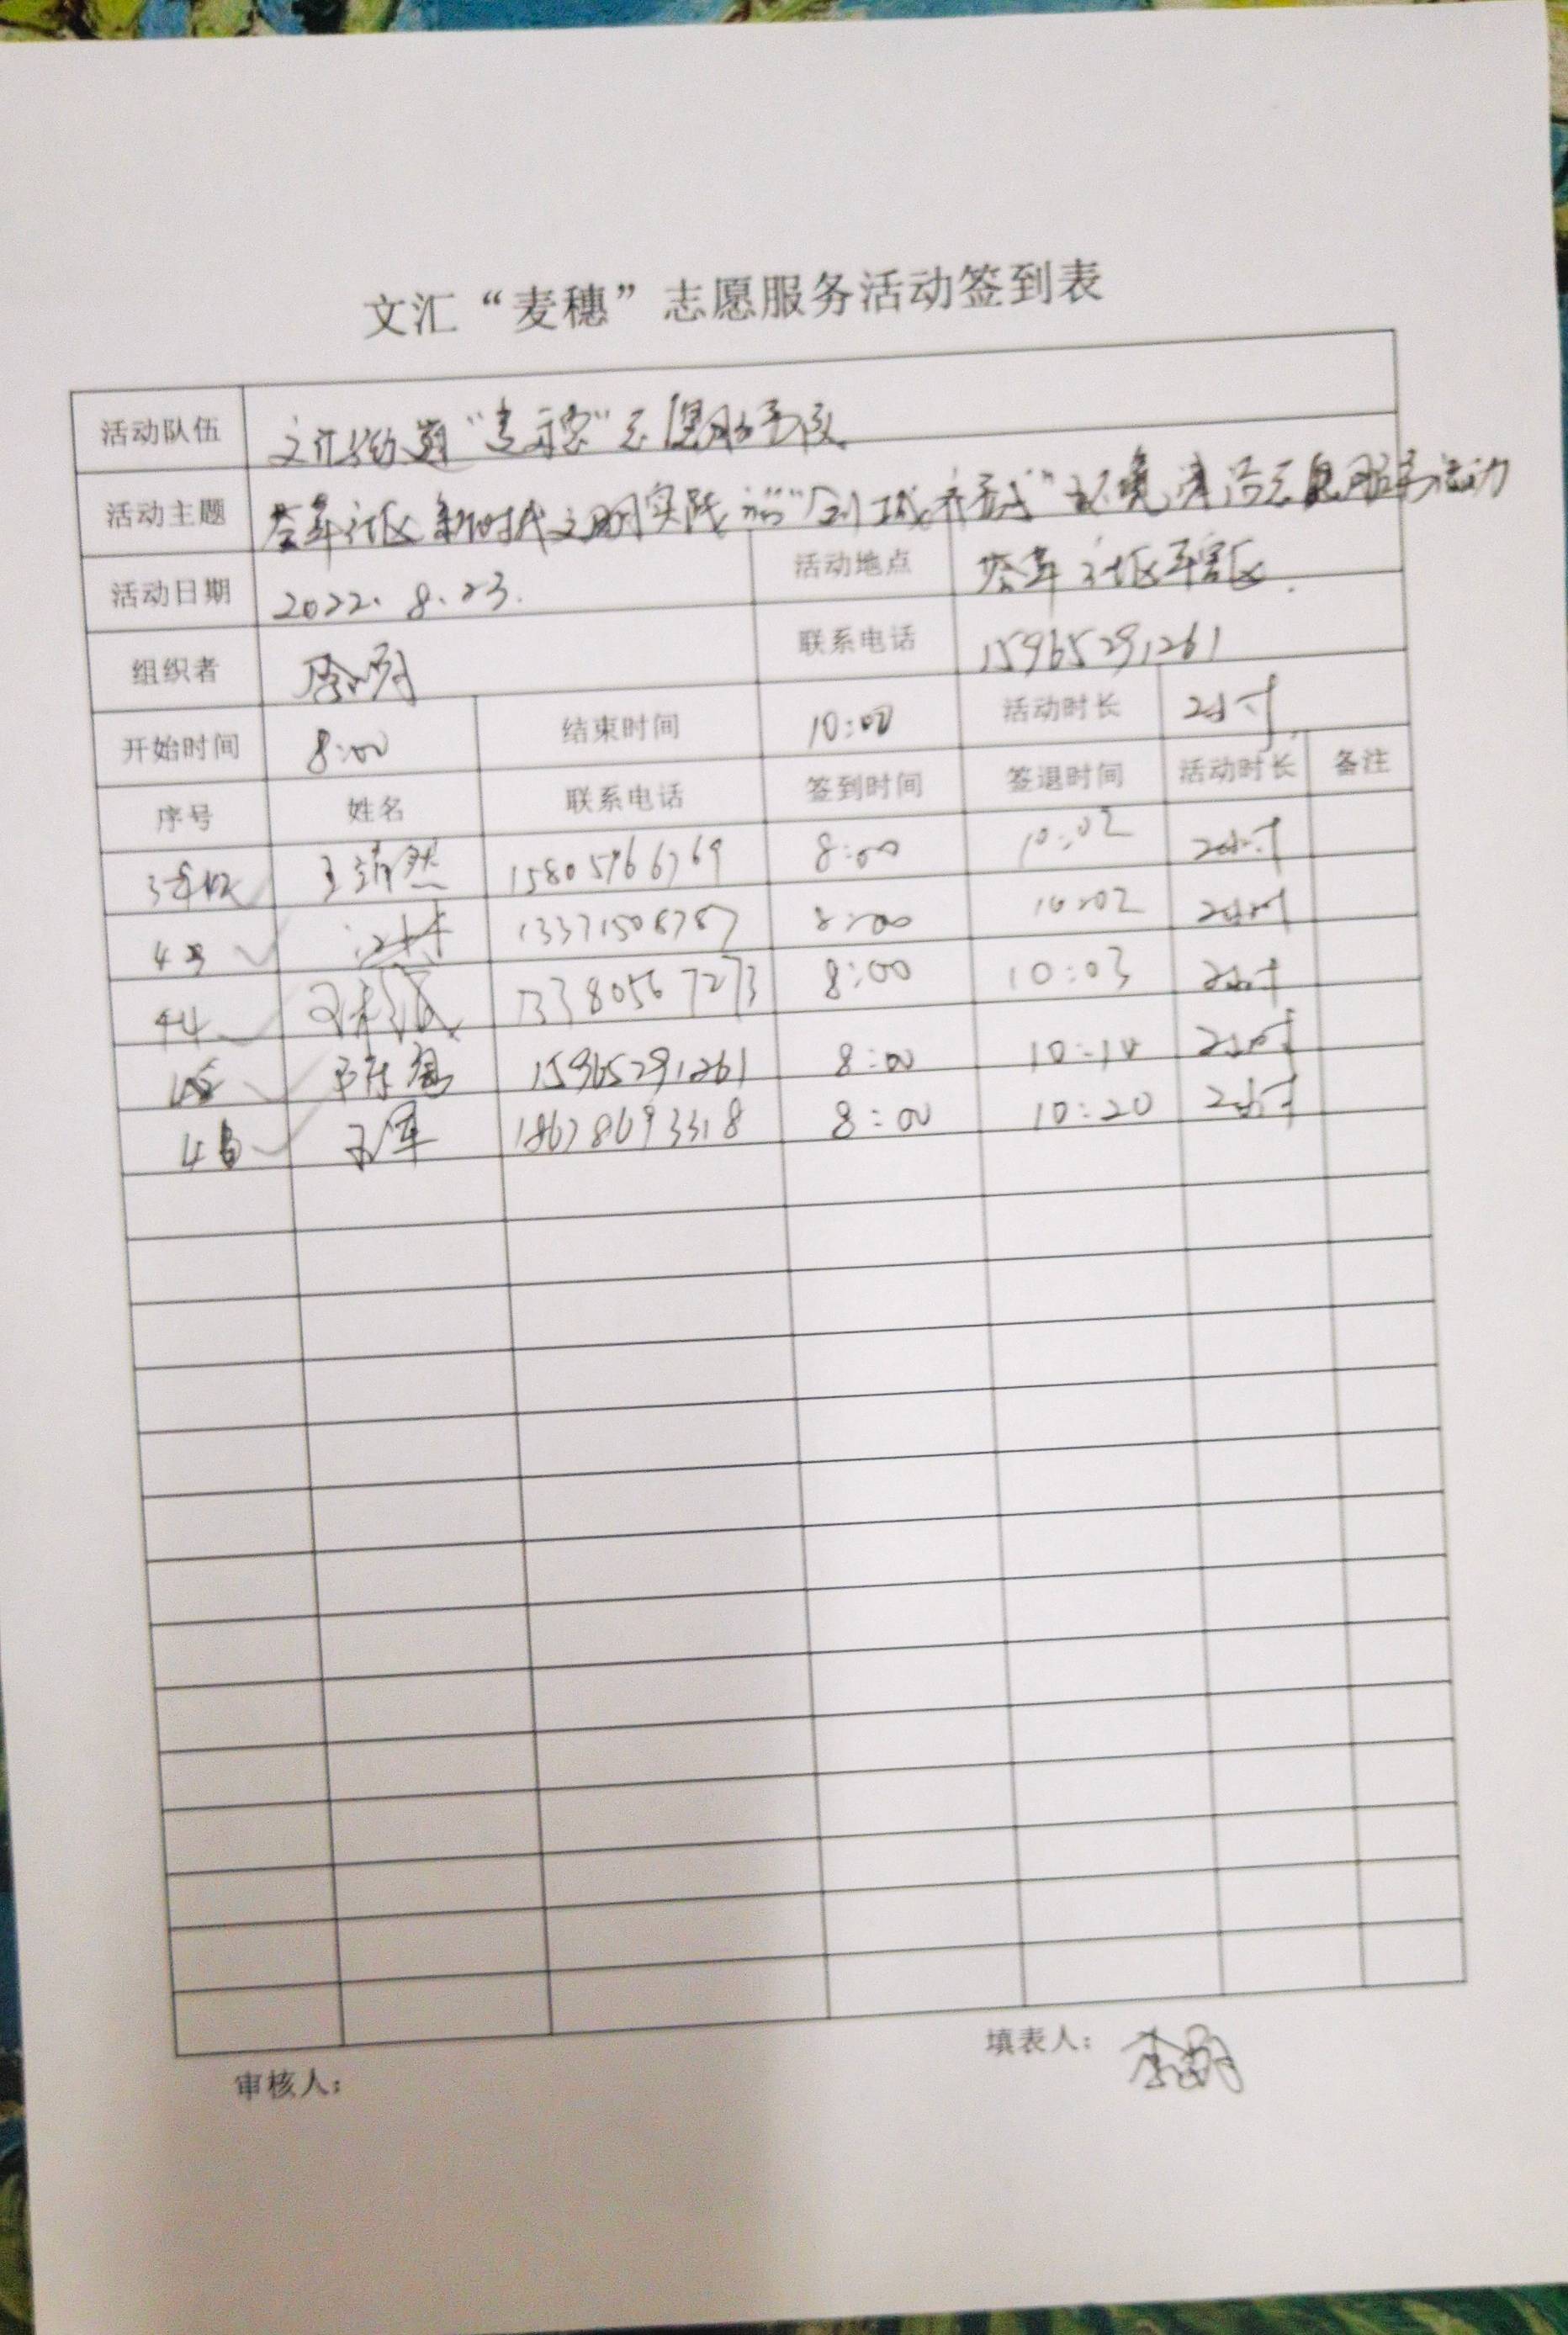 文汇“麦穗”志愿服务活动签到表
活动队伍 文汇街道“麦穗”志愿服务队
活动主题 社区新时代文明实践 环境清洁志愿服务活动
活动日期 2022.8.23. 活动地点 社区辖区.
组织者 联系电话 15965291261
开始时间 8:00 结束时间 10:00 活动时长 2小时
序号 姓名 联系电话 签到时间 签退时间 活动时长 备注
王靖然 15805966769 8:00 10:02 2小时
43 13371508787 8:00 10:02 2小时
44 13380567273 8:00 10:03 2小时
45 15965291261 8:00 10:10 2小时
46 王军 18678693318 8:00 10:20 2小时
审核人： 填表人：